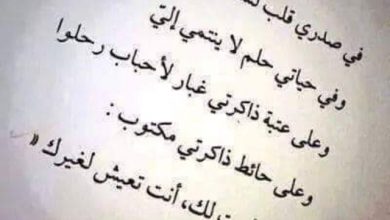 في صدري قلب
وفي حياتي حلم لا ينتمي إليّ
وعلى عتبة ذاكرتي غبار لأحباب رحلوا
وعلى حائط ذاكرتي مكتوب :
لك، أنت تعيش لغيرك »